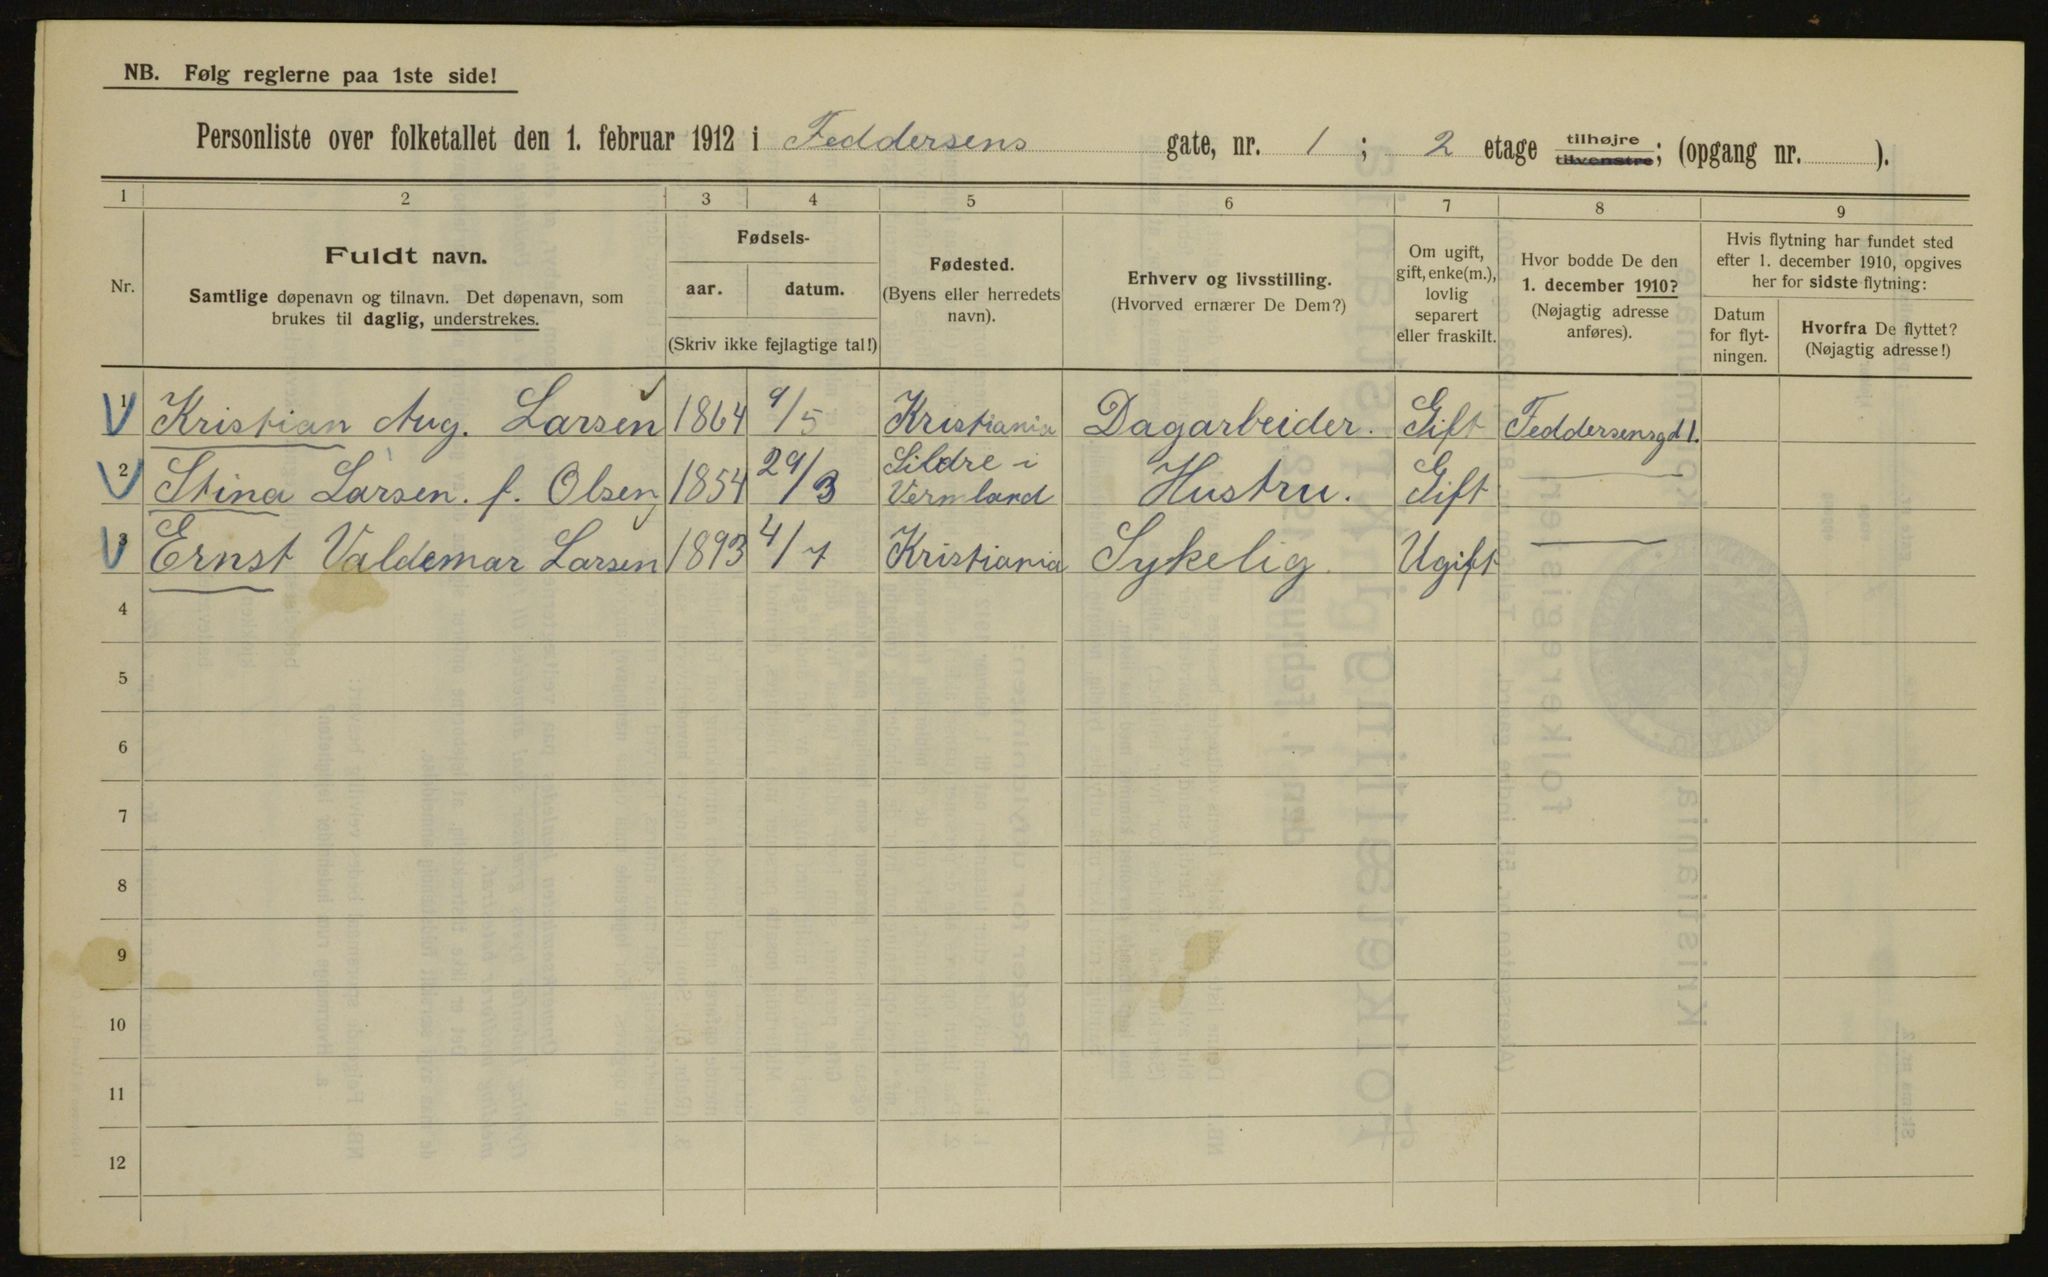 NB. Følg reglerne paa 1ste side!
Personliste over folketallet den 1. februar 1912 i Feddersens gate, nr. 1 ; 2 etage tilhøjre tilvenstre; (opgang nr. ).
1 2 3 4 5 6 7 8 9
Nr.
Fuldt navn.
Samtlige døpenavn og tilnavn. Det døpenavn, som
brukes til daglig, understrekes.
Fødsels-
aar. datum.
(Skriv ikke fejlagtige tal!)
Fødested.
(Byens eller herredets
navn).
Erhverv og livsstilling.
(Hvorved ernærer De Dem?)
Om ugift,
gift, enke(m.),
lovlig
separert
eller fraskilt.
Hvor bodde De den
1. december 1910?
(Nøjagtig adresse
anføres).
Hvis flytning har fundet sted
efter 1. december 1910, opgives
her for sidste flytning:
Datum
for flyt-
ningen.
Hvorfra De flyttet?
(Nøjagtig adresse!)
1 Kristian Aug. Larsen 1864 9/5 Kristiania Dagarbeider. Gift Feddersensgd 1.
2 Stina Larsen. f. Olsen 1854 29/3 Sildre i Vermland Hustru. Gift —
3 Ernst Valdemar Larsen 1893 4/7 Kristiania Sykelig Ugift —
4
5
6
7
8
9
10
11
12